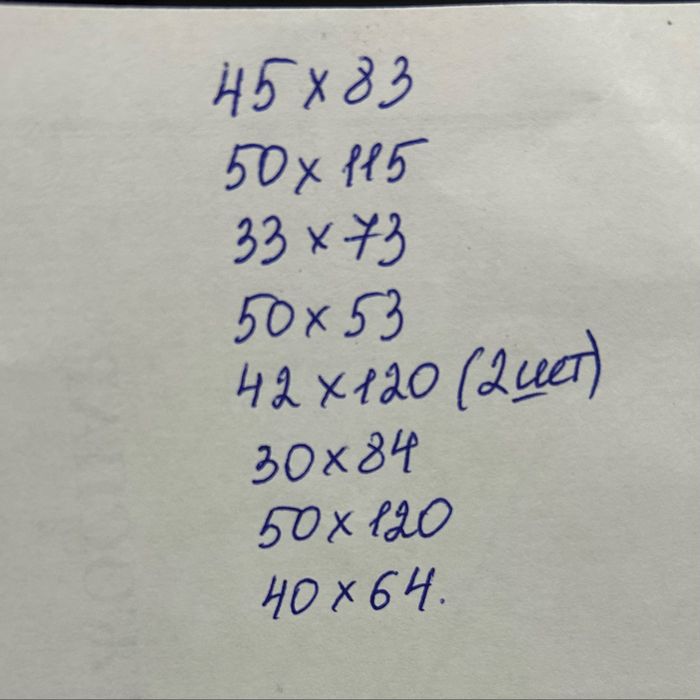 45 x 83
50 x 115
33 x 73
50 x 53
42 x 120 (2шт)
30 x 84
50 x 120
40 x 64.